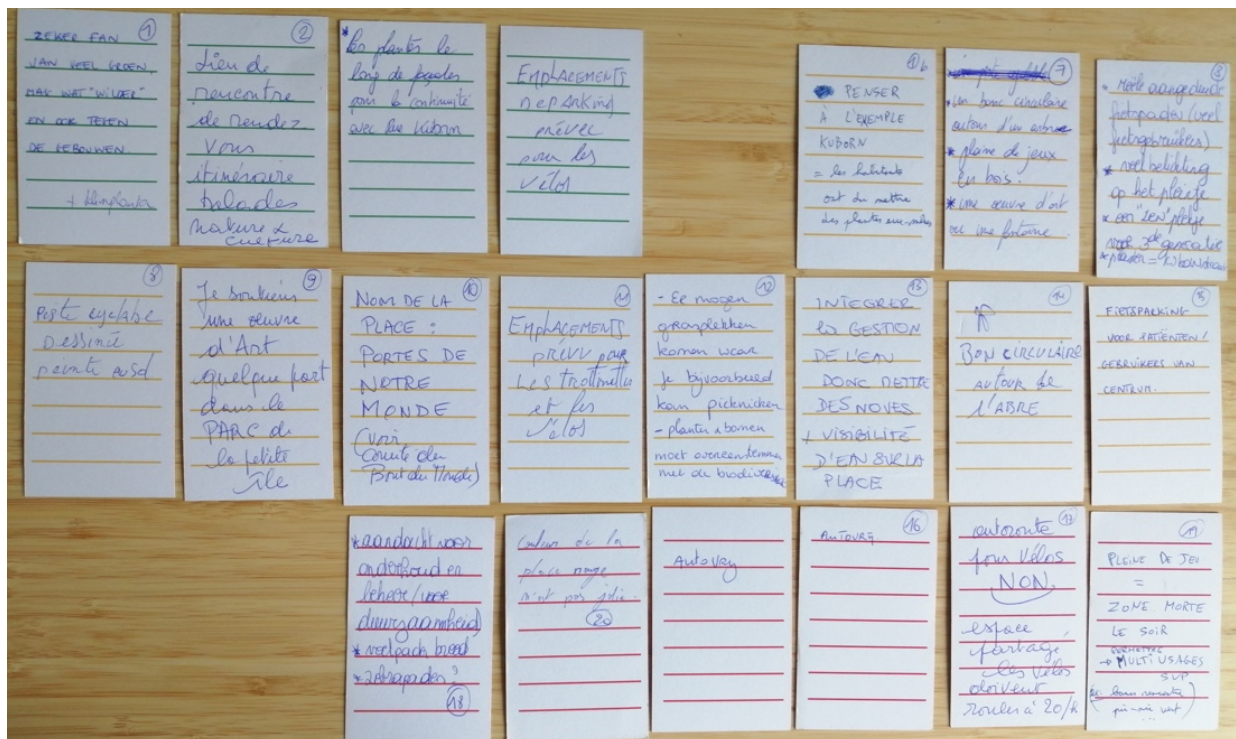 ZEKER FAN
①
VAN VEEL GROEN,
MAG WAT "WILDER"
EN OOK TEGEN
DE GEBOUWEN.
+ klimplanten
②
Lieu de
rencontre
de rendez
vous
itinéraire
balades
nature &
culture
* les plantes le
long de façades
pour la continuité
avec rue Kuborn
EMPLACEMENTS
DE PARKING
prévu
pour les
vélos
PENSER
À L'EXEMPLE
KUBORN
= les habitants
ont du mettre
des plantes eux-mêmes
⑦
* un banc circulaire
autour d'un arbre
* plaine de jeux
en bois.
* une œuvre d'art
ou une fontaine.
fietspaden (veel
fietsgebruikers)
* veel belichting
op het pleintje
* een "ZEN" plekje
voor 3de generatie
⑧
Piste cyclable
Dessinée
peinte au sol
⑨
Je soutiens
une œuvre
d'Art
quelque part
dans le
PARC de
la petite
île
⑩
NOM DE LA
PLACE :
PORTES DE
NOTRE
MONDE
(voir
Comité du
Bout du Monde)
⑪
EMPLACEMENTS
prévu pour
Les trottinettes
et les
Vélos
⑫
- Er mogen
grasplekken
komen waar
je bijvoorbeeld
kan picknicken
- planten & bomen
moet overeenstemmen
met de biodiversiteit
⑬
INTEGRER
la GESTION
DE L'EAU
DONC METTRE
DES NOUES
+ VISIBILITÉ
D'EAU SUR LA
PLACE
⑭
BON CIRCULAIRE
AUTOUR DE
L'ABRE
⑮
FIETSPARKING
VOOR PATIËNTEN/
GEBRUIKERS VAN
CENTRUM.
* aandacht voor
onderhoud en
beheer (voor
duurzaamheid)
* zebrapaden ?
⑱
Couleur de la
place rouge
n'est pas jolie.
⑳
⑯
⑰
autoroute
pour vélos
NON.
espace
partagé,
les vélos
doivent
rouler à 20/h
⑲
PLEINE DE JEU
=
ZONE MORTE
LE SOIR
PERMETTRE
→ MULTI USAGES
SVP